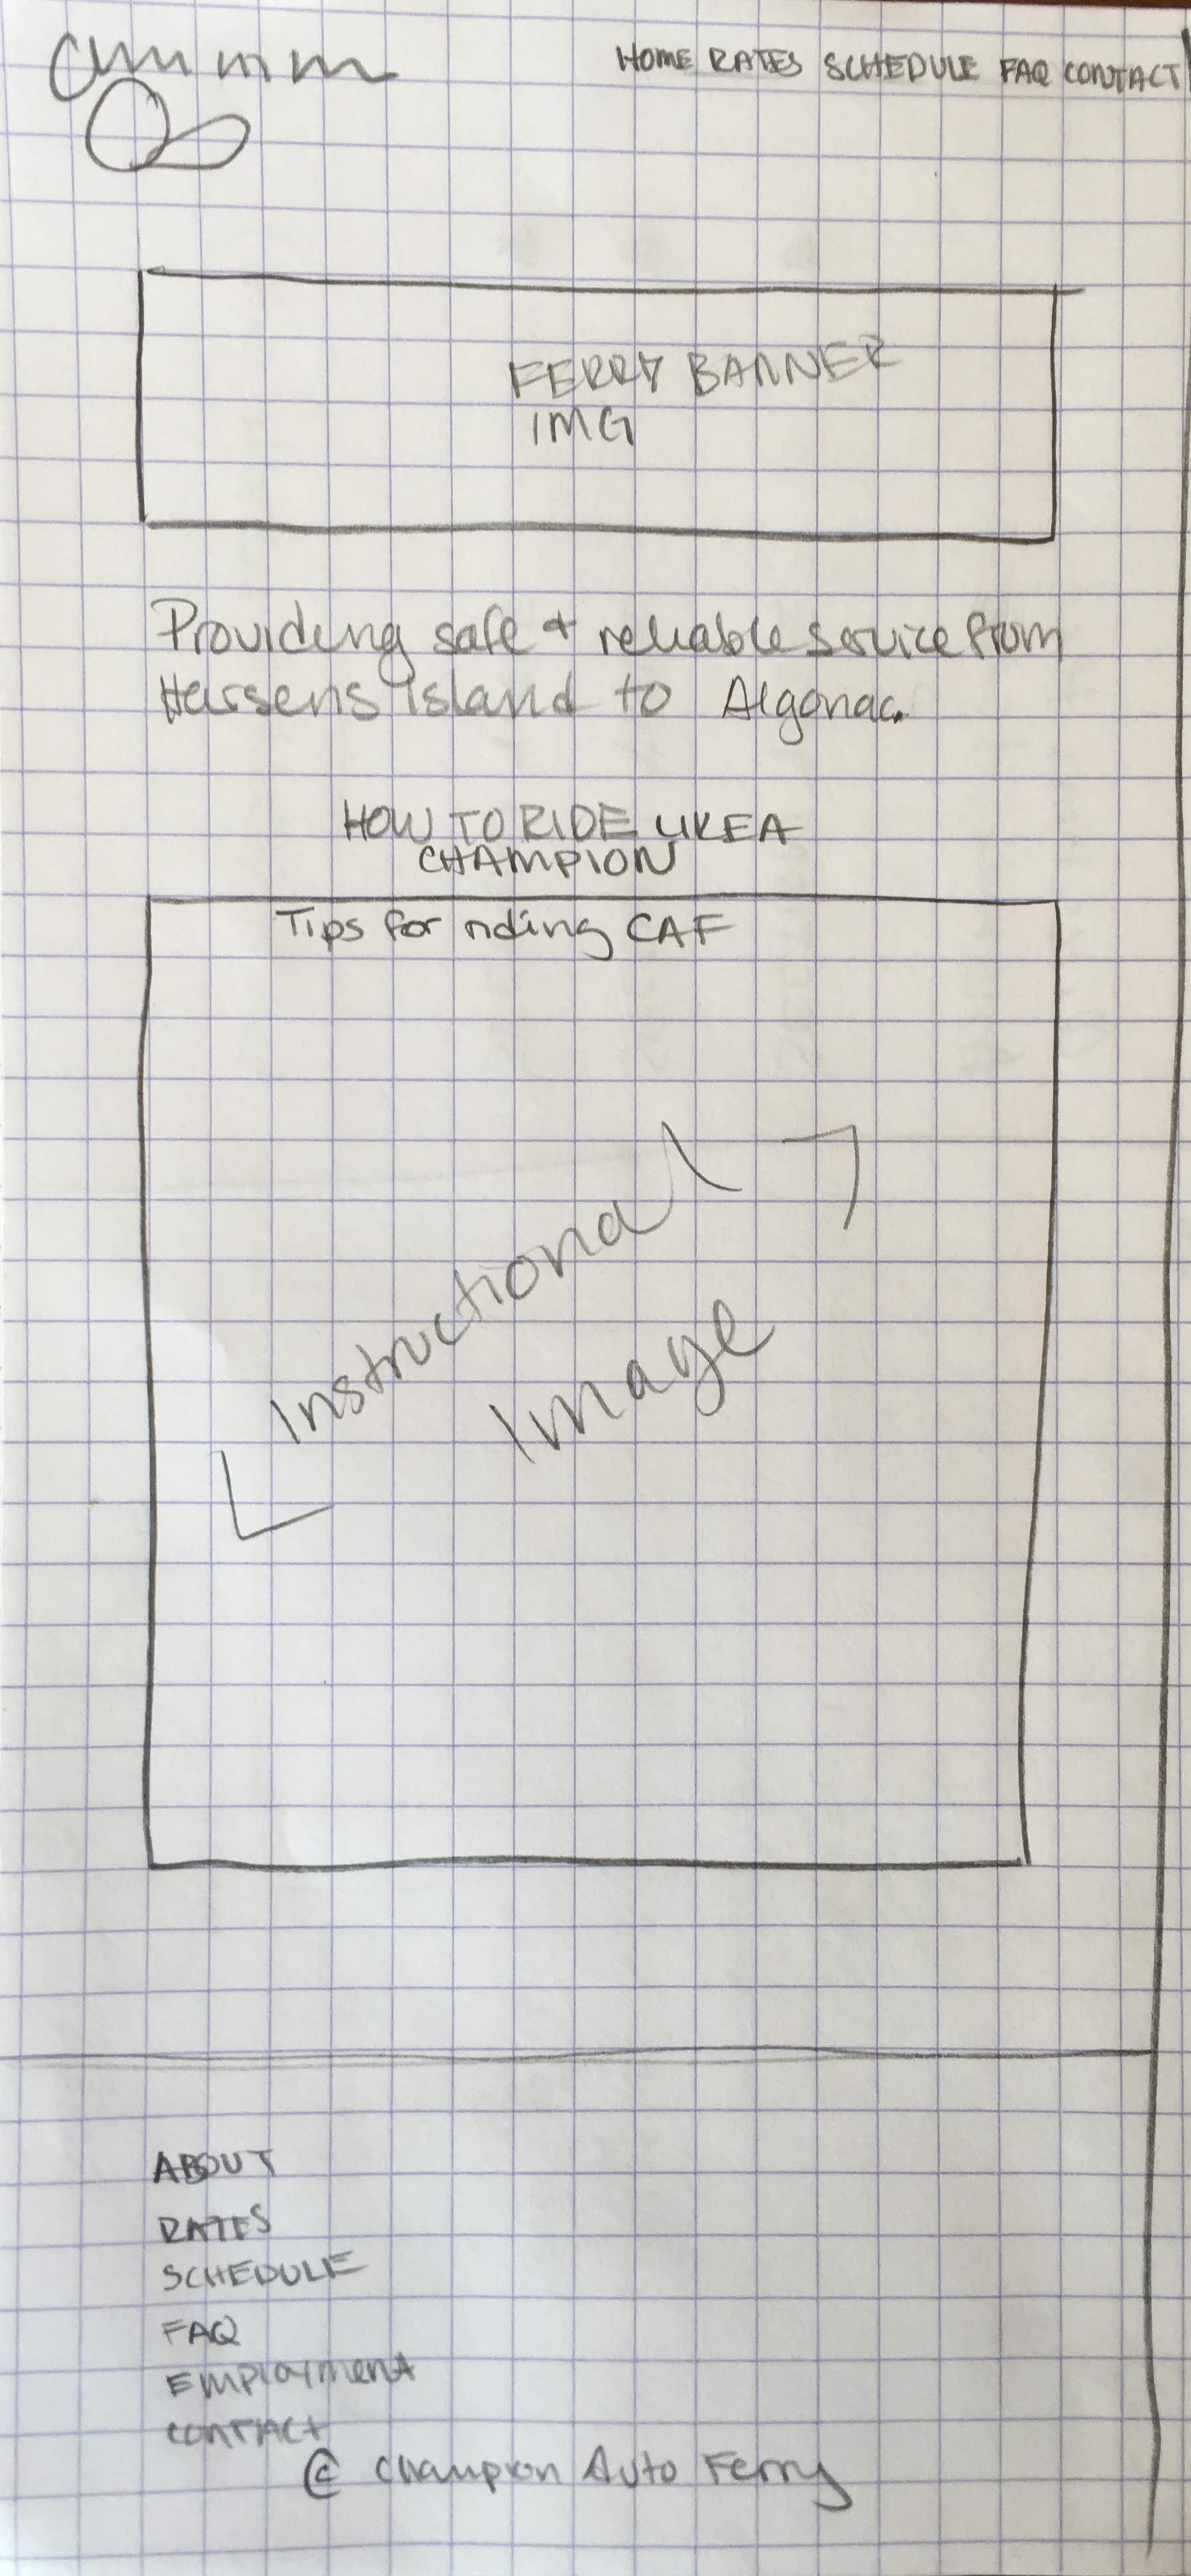 HOME RATES SCHEDULE FAQ CONTACT
FERRY BANNER
IMG
Providing safe + reliable service from
Harsens Island to Algonac.
HOW TO RIDE LIKE A
CHAMPION
Tips for riding CAF
Instructional
Image
ABOUT
RATES
SCHEDULE
FAQ
Employment
CONTACT
© Champion Auto Ferry